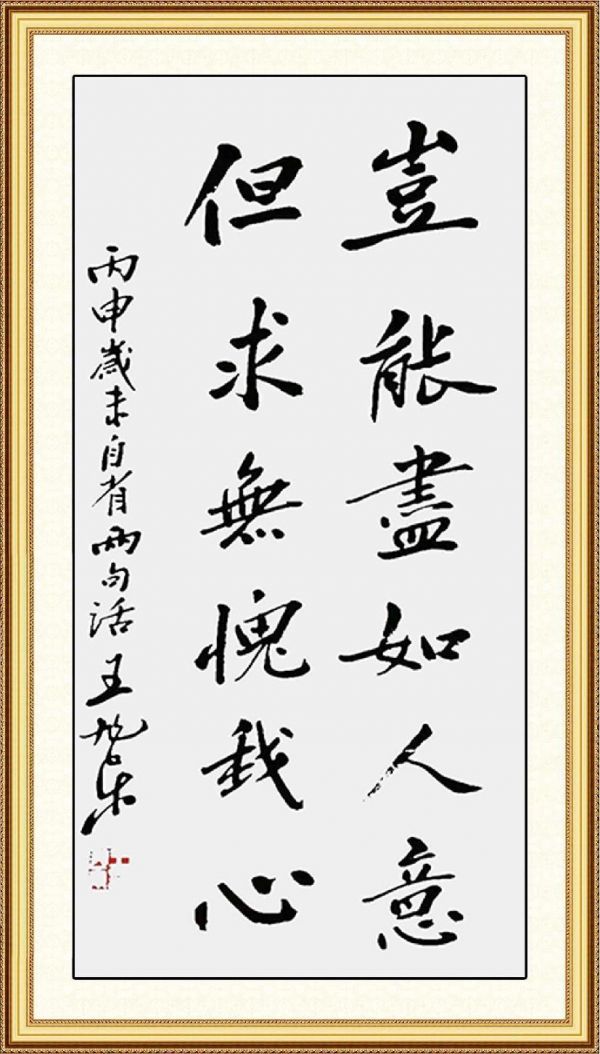 豈能盡如人意
但求無愧我心
丙申歲末自省兩句話 王旭东